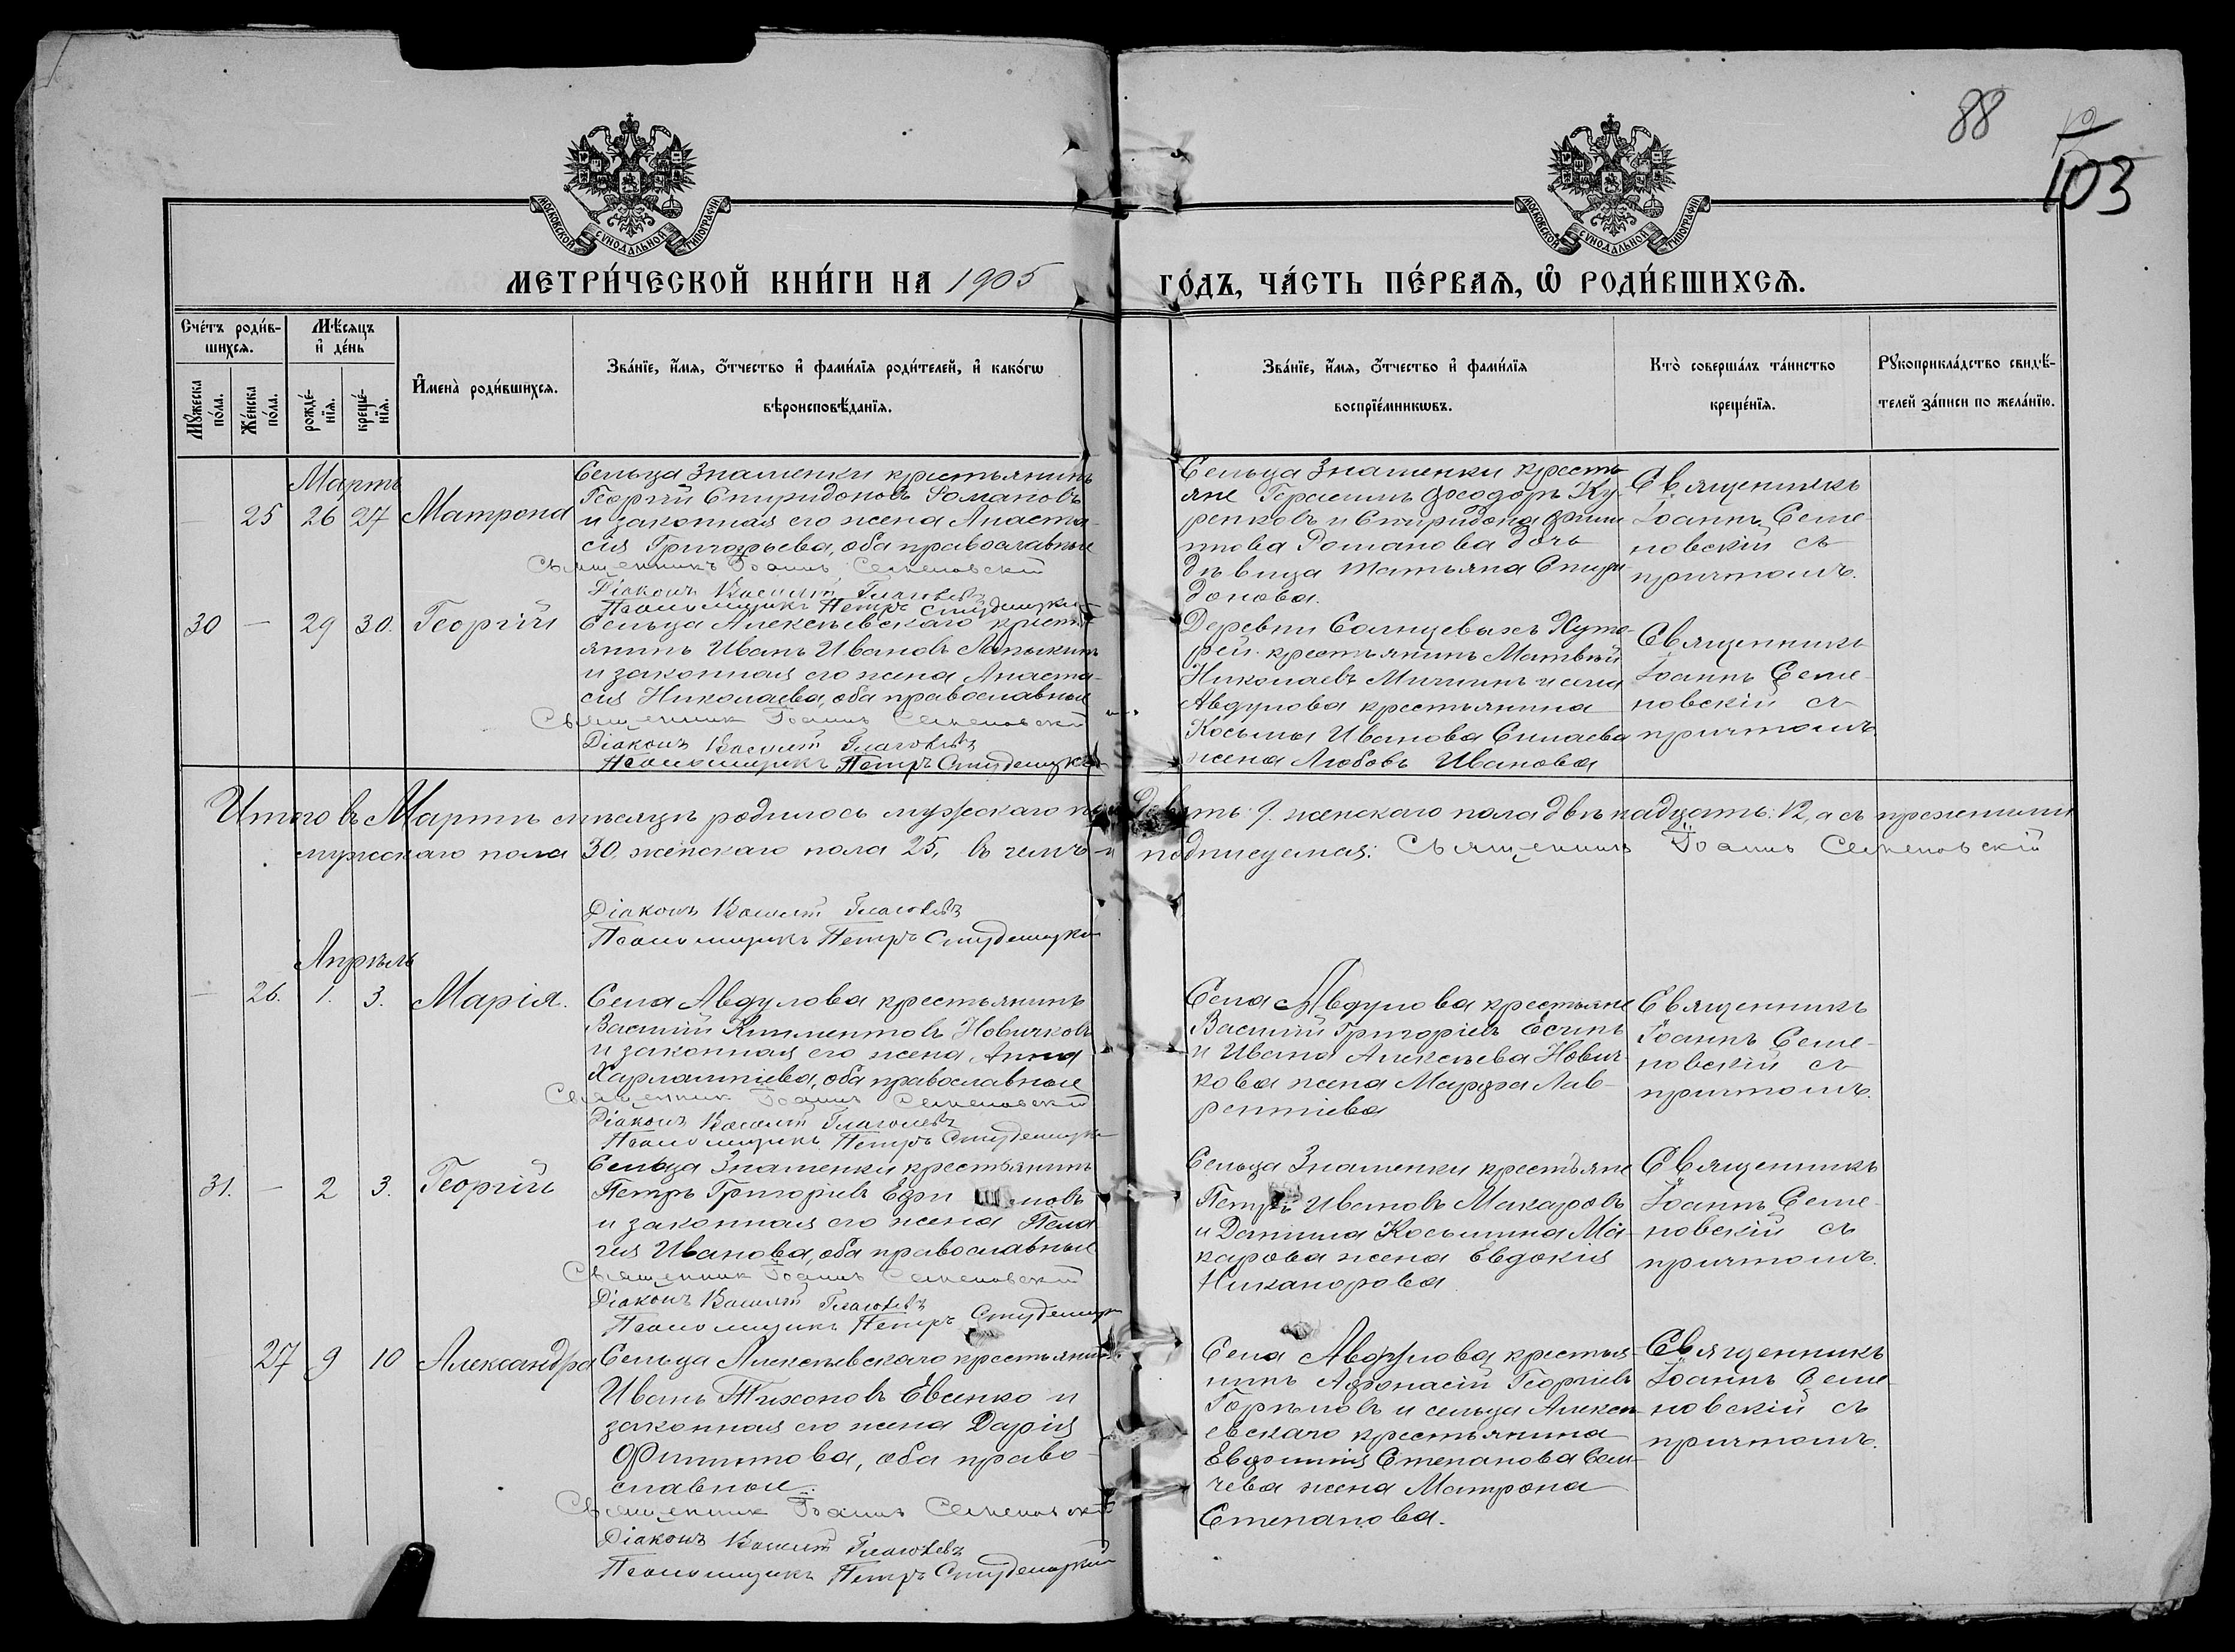 88
103
МОСКОВСКОЙ СѴНОДАЛЬНОЙ ТИПОГРАФІИ
МОСКОВСКОЙ СѴНОДАЛЬНОЙ ТИПОГРАФІИ
МЕТРИ́ЧЕСКОЙ КНИ́ГИ НА 1905 ГО́ДЪ, ЧА́СТЬ ПЕ́РВАЯ, Ѽ РОДИ́ВШИХСЯ.
Сче́тъ роди́в-
шихся.
Мꙋ́жеска по́ла.
Же́нска по́ла.
Мѣ́сяцъ
и҆ де́нь
рожде́-
нїя.
креще́-
нїя.
И҆мена̀ роди́вшихся.
Зва́нїе, и҆́мя, ѻ҆́тчество и҆ фами́лїя роди́телей, и҆ како́гѡ
вѣроисповѣ́данїя.
Зва́нїе, и҆́мя, ѻ҆́тчество и҆ фами́лїя
воспрїе́мникѡвъ.
Кто̀ соверша́лъ та́инство
креще́нїя.
Рꙋкоприкла́дство свидѣ́-
телей за́писи по жела́нїю.
Мартъ
— 25 26 27 Матрона
Сельца Знаменки крестьянинъ
Георгій Спиридоновъ Романовъ
и законная его жена Анаста-
сія Григорьева, оба православные
Священникъ Іоаннъ Семеновскій
Діаконъ Василій Глаголевъ
Псаломщикъ Петръ Студенецкій
Сельца Знаменки кресть-
яне Герасимъ Ѳеодоръ Ку-
ренковъ и Спиридона Фили-
ппова Романова дочь
дѣвица Татьяна Спири
донова.
Священникъ
Іоаннъ Семе-
новскій съ
причтомъ.
30 — 29 30. Георгій
Сельца Алексѣевскаго кресть-
янинъ Иванъ Ивановъ
и законная его жена Анаста-
сія Николаева, оба православные
Священникъ Іоаннъ Семеновскій
Діаконъ Василій Глаголевъ
Псаломщикъ Петръ Студенецкій
Деревни Солнцевыхъ Хуто-
рей крестьянинъ Матвѣй
Николаевъ Мишинъ и села
Авдулова крестьянина
Косьмы Иванова Синаева
жена Любовь Иванова
Священникъ
Іоаннъ Семе-
новскій съ
причтомъ
Итого въ Мартѣ мѣсяцѣ родилось мужескаго пола девять: 9. женскаго пола двѣнадцать: 12, а съ прежними
мужескаго пола 30, женскаго пола 25, въ чемъ и подписуемся: Священникъ Іоаннъ Семеновскій
Діаконъ Василій Глаголевъ
Псаломщикъ Петръ Студенецкій
Апрѣль
— 26. 1. 3. Марія.
Села Авдулова крестьянинъ
Василій Климентовъ Новичковъ
и законная его жена Анна
Харлампіева, оба православные
Священникъ Іоаннъ Семеновскій
Діаконъ Василій Глаголевъ
Псаломщикъ Петръ Студенецкій
Села Авдулова крестьяне
Василій Григоріевъ Есинъ
и Ивана Алексѣева Нович-
кова жена Марѳа Лав-
рентіева
Священникъ
Іоаннъ Семе-
новскій съ
причтомъ.
31. — 2 3. Георгій
Сельца Знаменки крестьянинъ
Петръ Григоріевъ Ефри мовъ
и законная его жена Пела
гія Иванова, оба православные
Священникъ Іоаннъ Семеновскій
Діаконъ Василій Глаголевъ
Псаломщикъ Петръ Студенецкій
Сельца Знаменки крестьяне
Петръ Ивановъ Макаровъ
и Даніила Косьмина Ма-
карова жена Евдокія
Никанорова
Священникъ
Іоаннъ Семе-
новскій съ
причтомъ.
27 9 10 Александра
Сельца Алексѣевскаго крестьянинъ
Иванъ Тихоновъ Евсенко и
законная его жена Дарія
Филиппова, оба право-
славные.
Священникъ Іоаннъ Семеновскій
Діаконъ Василій Глаголевъ
Псаломщикъ Петръ Студенецкій
Села Авдулова крестья-
нинъ Аѳонасій Георгіевъ
Горѣловъ и сельца Алексѣ-
евскаго крестьянина
Евѳимія Степанова
жена Матрона
Степанова.
Священникъ
Іоаннъ Семе-
новскій съ
причтомъ.